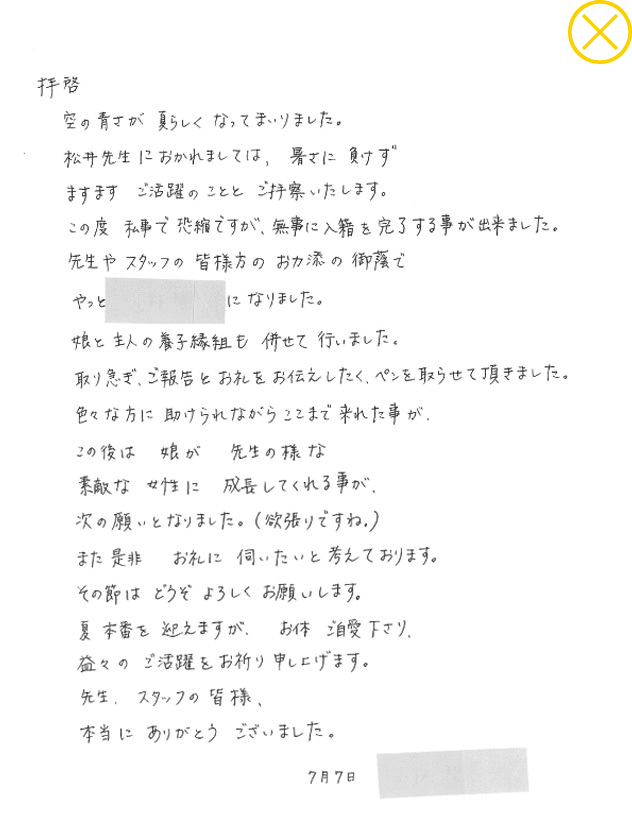 拝啓
空の青さが 夏らしく なってまいりました。
松井先生におかれましては、暑さに 負けず
ますます ご活躍のことと ご拝察いたします。
この度 私事で 恐縮ですが、無事に入籍を完了する事が出来ました。
先生や スタッフの 皆様方の お力添の 御蔭で
やっと になりました。
娘と 主人の養子縁組も 併せて 行いました。
取り急ぎ、ご報告と お礼を お伝えしたく、ペンを取らせて頂きました。
色々な方に 助けられながら ここまで 来れた事が、
この後は 娘が 先生の様な
素敵な 女性に 成長してくれる事が、
次の願いとなりました。(欲張りですね。)
また是非 お礼に 伺いたいと 考えております。
その節は どうぞ よろしく お願いします。
夏 本番を 迎えますが、お体 ご自愛下さり、
益々の ご活躍をお祈り申し上げます。
先生、スタッフの 皆様、
本当に ありがとう ございました。
7月7日